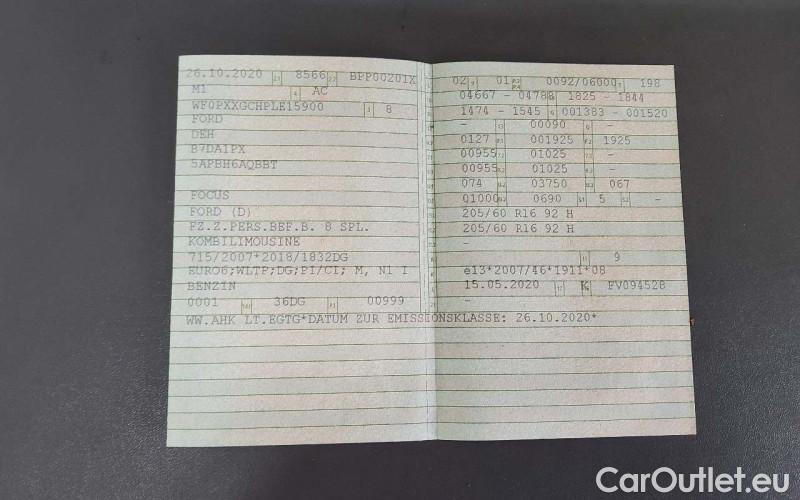 26.10.2020 8566 BPP00201X
M1 4 AC
WF0PXXGCHPLE15900 3 8
FORD
DEH
B7DA1PX
5APBH6AQBBT
FOCUS
FORD (D)
FZ.Z.PERS.BEF.B. 8 SPL.
KOMBILIMOUSINE
715/2007*2018/1832DG
EURO6;WLTP;DG;PI/CI; M, N1 I
BENZIN
0001 36DG 00999
WW.AHK LT.EGTG*DATUM ZUR EMISSIONSKLASSE: 26.10.2020*
02 01 0092/06000 198
04667 - 04788 1825 - 1844
1474 - 1545 001383 - 001520
- 00090 -
0127 001925 1925
00955 01025 -
00955 01025 -
074 03750 067
01000 0690 5 -
205/60 R16 92 H
205/60 R16 92 H
-
9
e13*2007/46*1911*08
15.05.2020 K FV094528
-
CarOutlet.eu